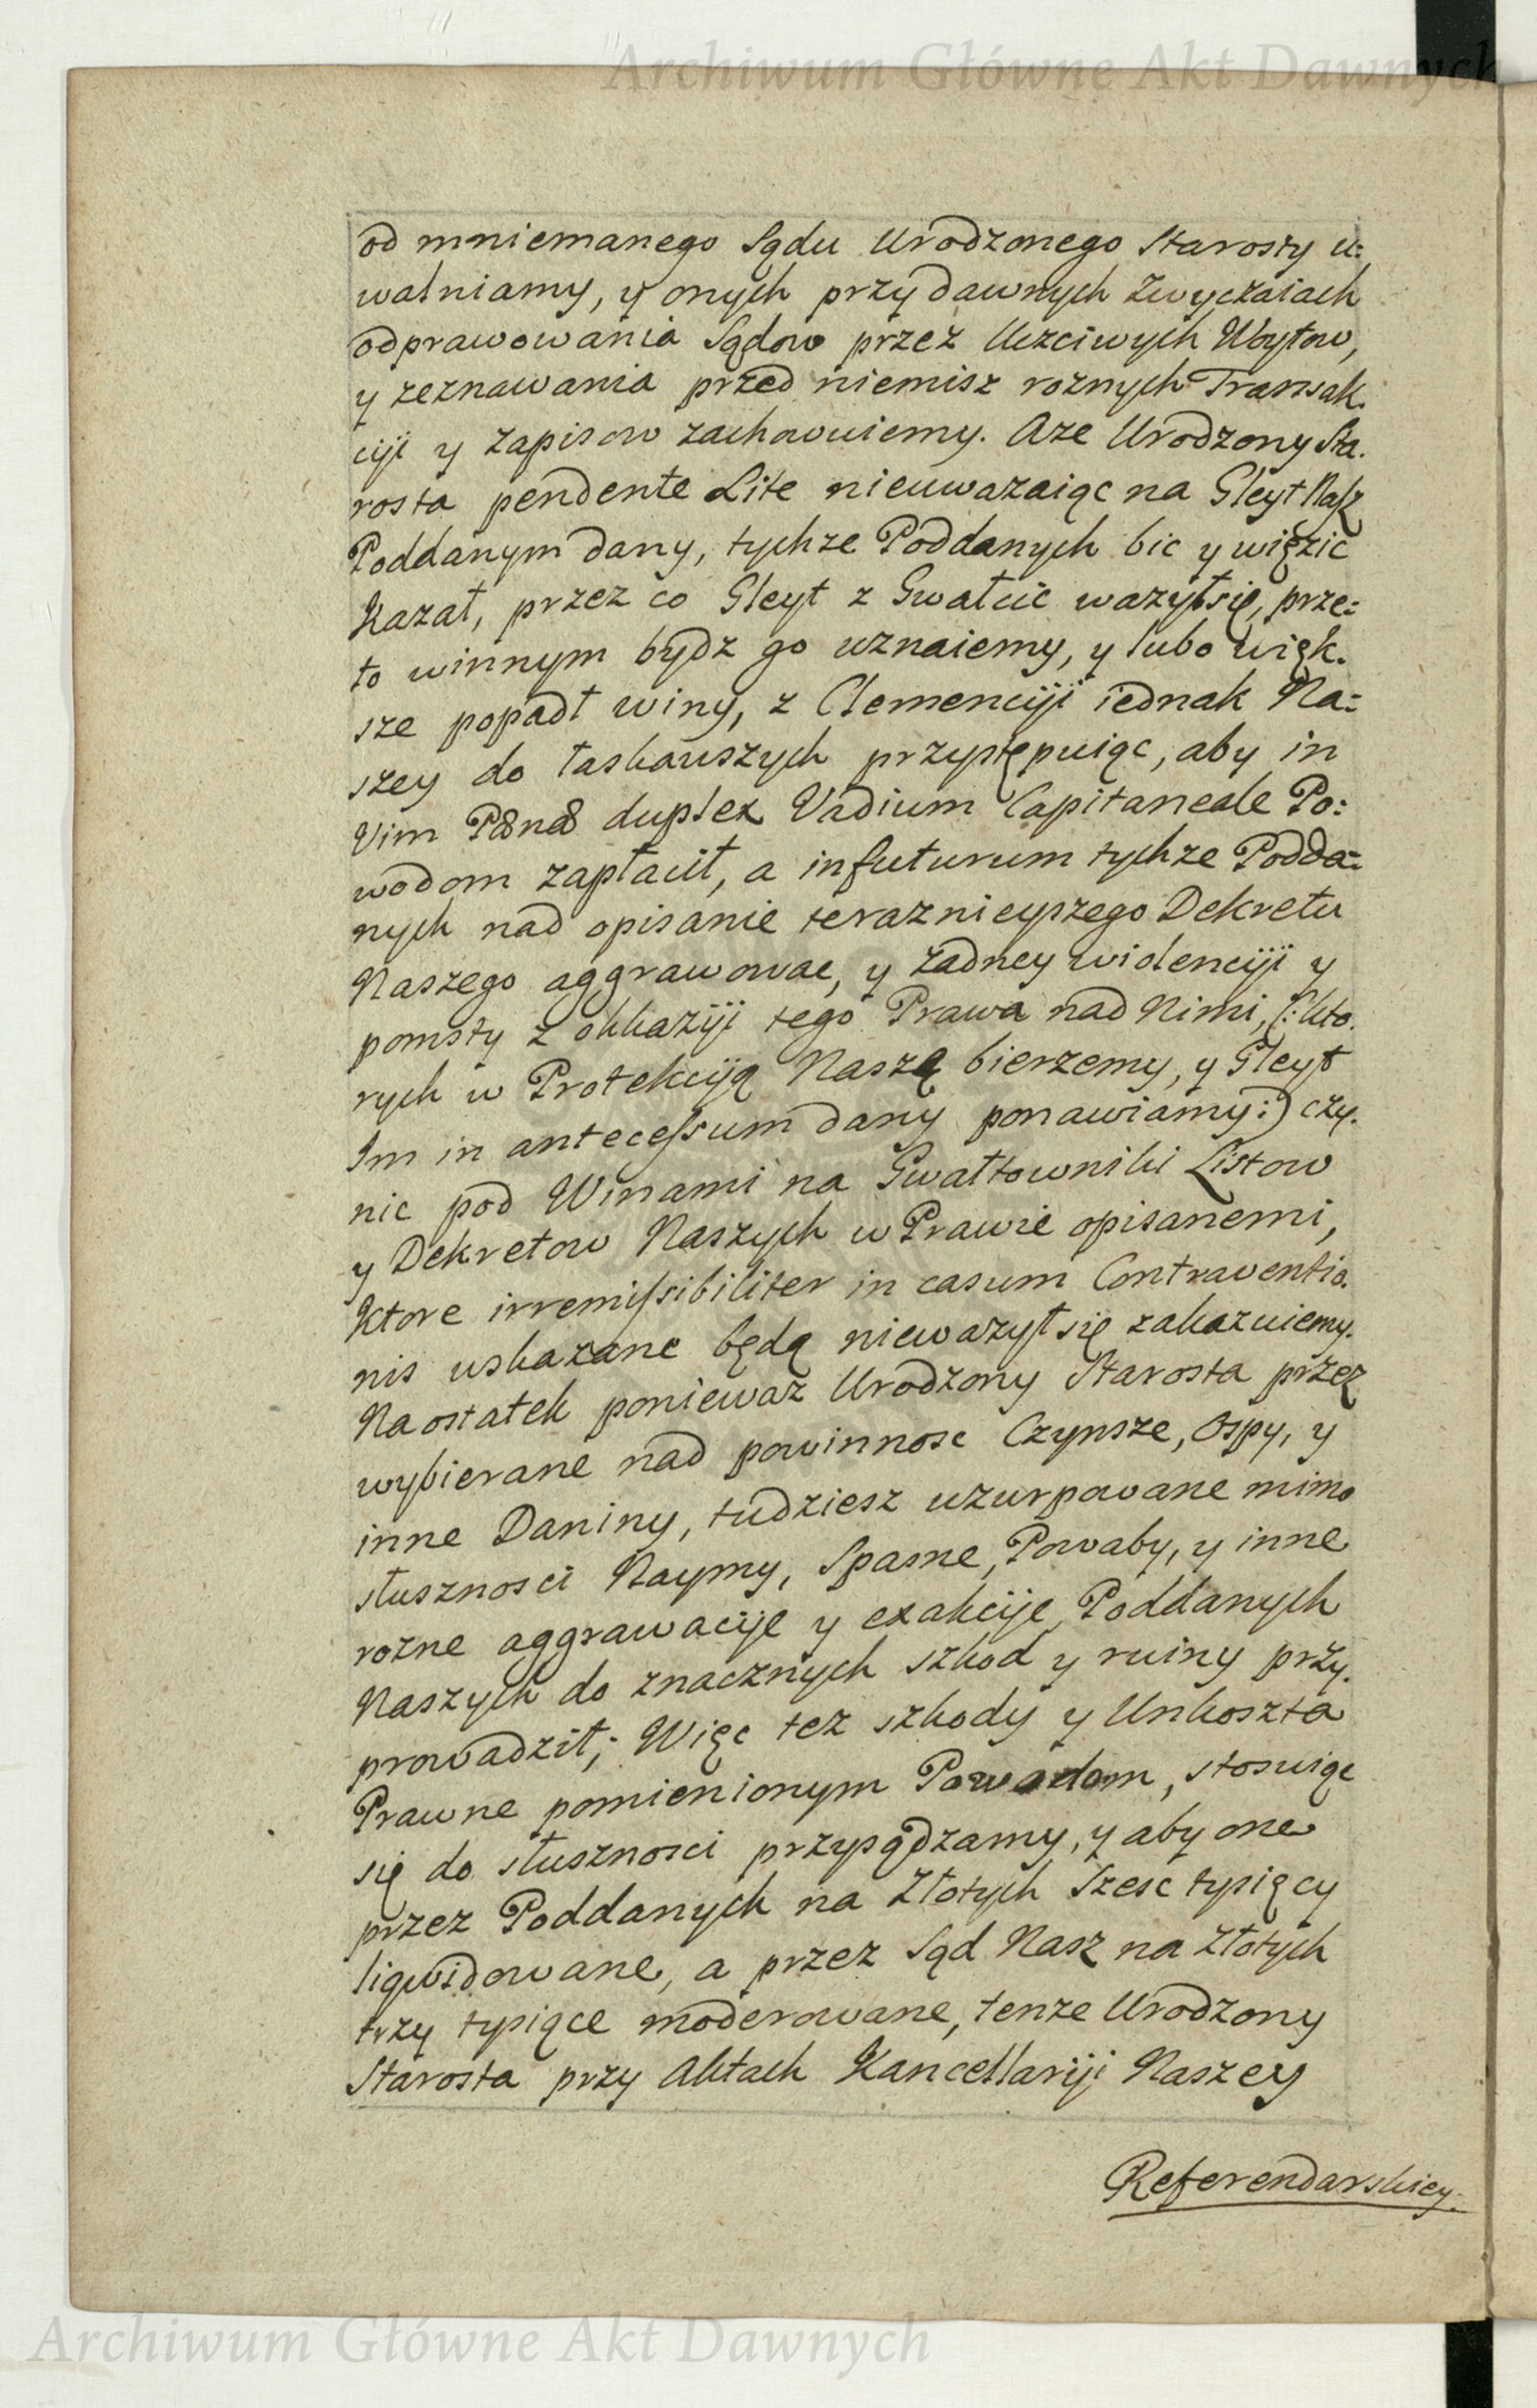 Archiwum Główne Akt Dawnych
od mniemanego Sądu Urodzonego Starosty u:
walniamy, y onych przy dawnych zwyczaiach
odprawowania Sądow przez Uczciwych Woytow,
y zeznawania przed niemisz roznych Transak.
cyi y zapisow zachowuiemy. Aze Urodzony Sta.
rosta pendente Lite nieuwazaiąc na Gleyt Nasz
Poddanym dany, tychze Poddanych bic y więzic
Kazał, przez co Gleyt z Gwałcic wazył się, prze:
to winnym bydz go uznaiemy, y lubo więk.
sze popadł winy, z Clemencyi iednak Na:
szey do łaskawszych przystępuiąc, aby in
vim Pænæ duplex Vadium Capitaneale Po:
wodom zapłacił, a infuturum tychze Podda:
nych nad opisanie teraznieyszego Dekretu
Naszego aggrawowac, y zadney widencyi y
pomsty z okkazyi tego Prawa nad Nimi, (: kto.
rych w Protekcyą Naszą bierzemy, y Gleyt
Im in antecessum dany ponawiamy :) czy.
nic pod Winami na Gwałtowniki Listow
y Dekretow Naszych w Prawie opisanemi,
Ktore irremissibiliter in casum Contraventio.
nis wskazane będą niewazył się zakazuiemy.
Na ostatek poniewaz Urodzony Starosta przez
wybierane nad powinnosc Czynsze, Ospy, y
inne Daniny, tudziesz uzurpowane mimo
słusznosci Naymy, Spasne, Powaby, y inne
rozne aggrawacye y exakcye Poddanych
Naszych do znacznych szkod y ruiny przy.
prowadził; Więc tez szkody y Unkoszta
Prawne pomienionym Powodom, stosuiąc
się do słusznosci przysądzamy, y aby one
przez Poddanych na Złotych Szesc tysięcy
liqwidowane, a przez Sąd Nasz na Złotych
trzy tysiące moderowane, tenze Urodzony
Starosta przy Aktach Kancellaryi Naszey
Referendarskiey.
Archiwum Główne Akt Dawnych